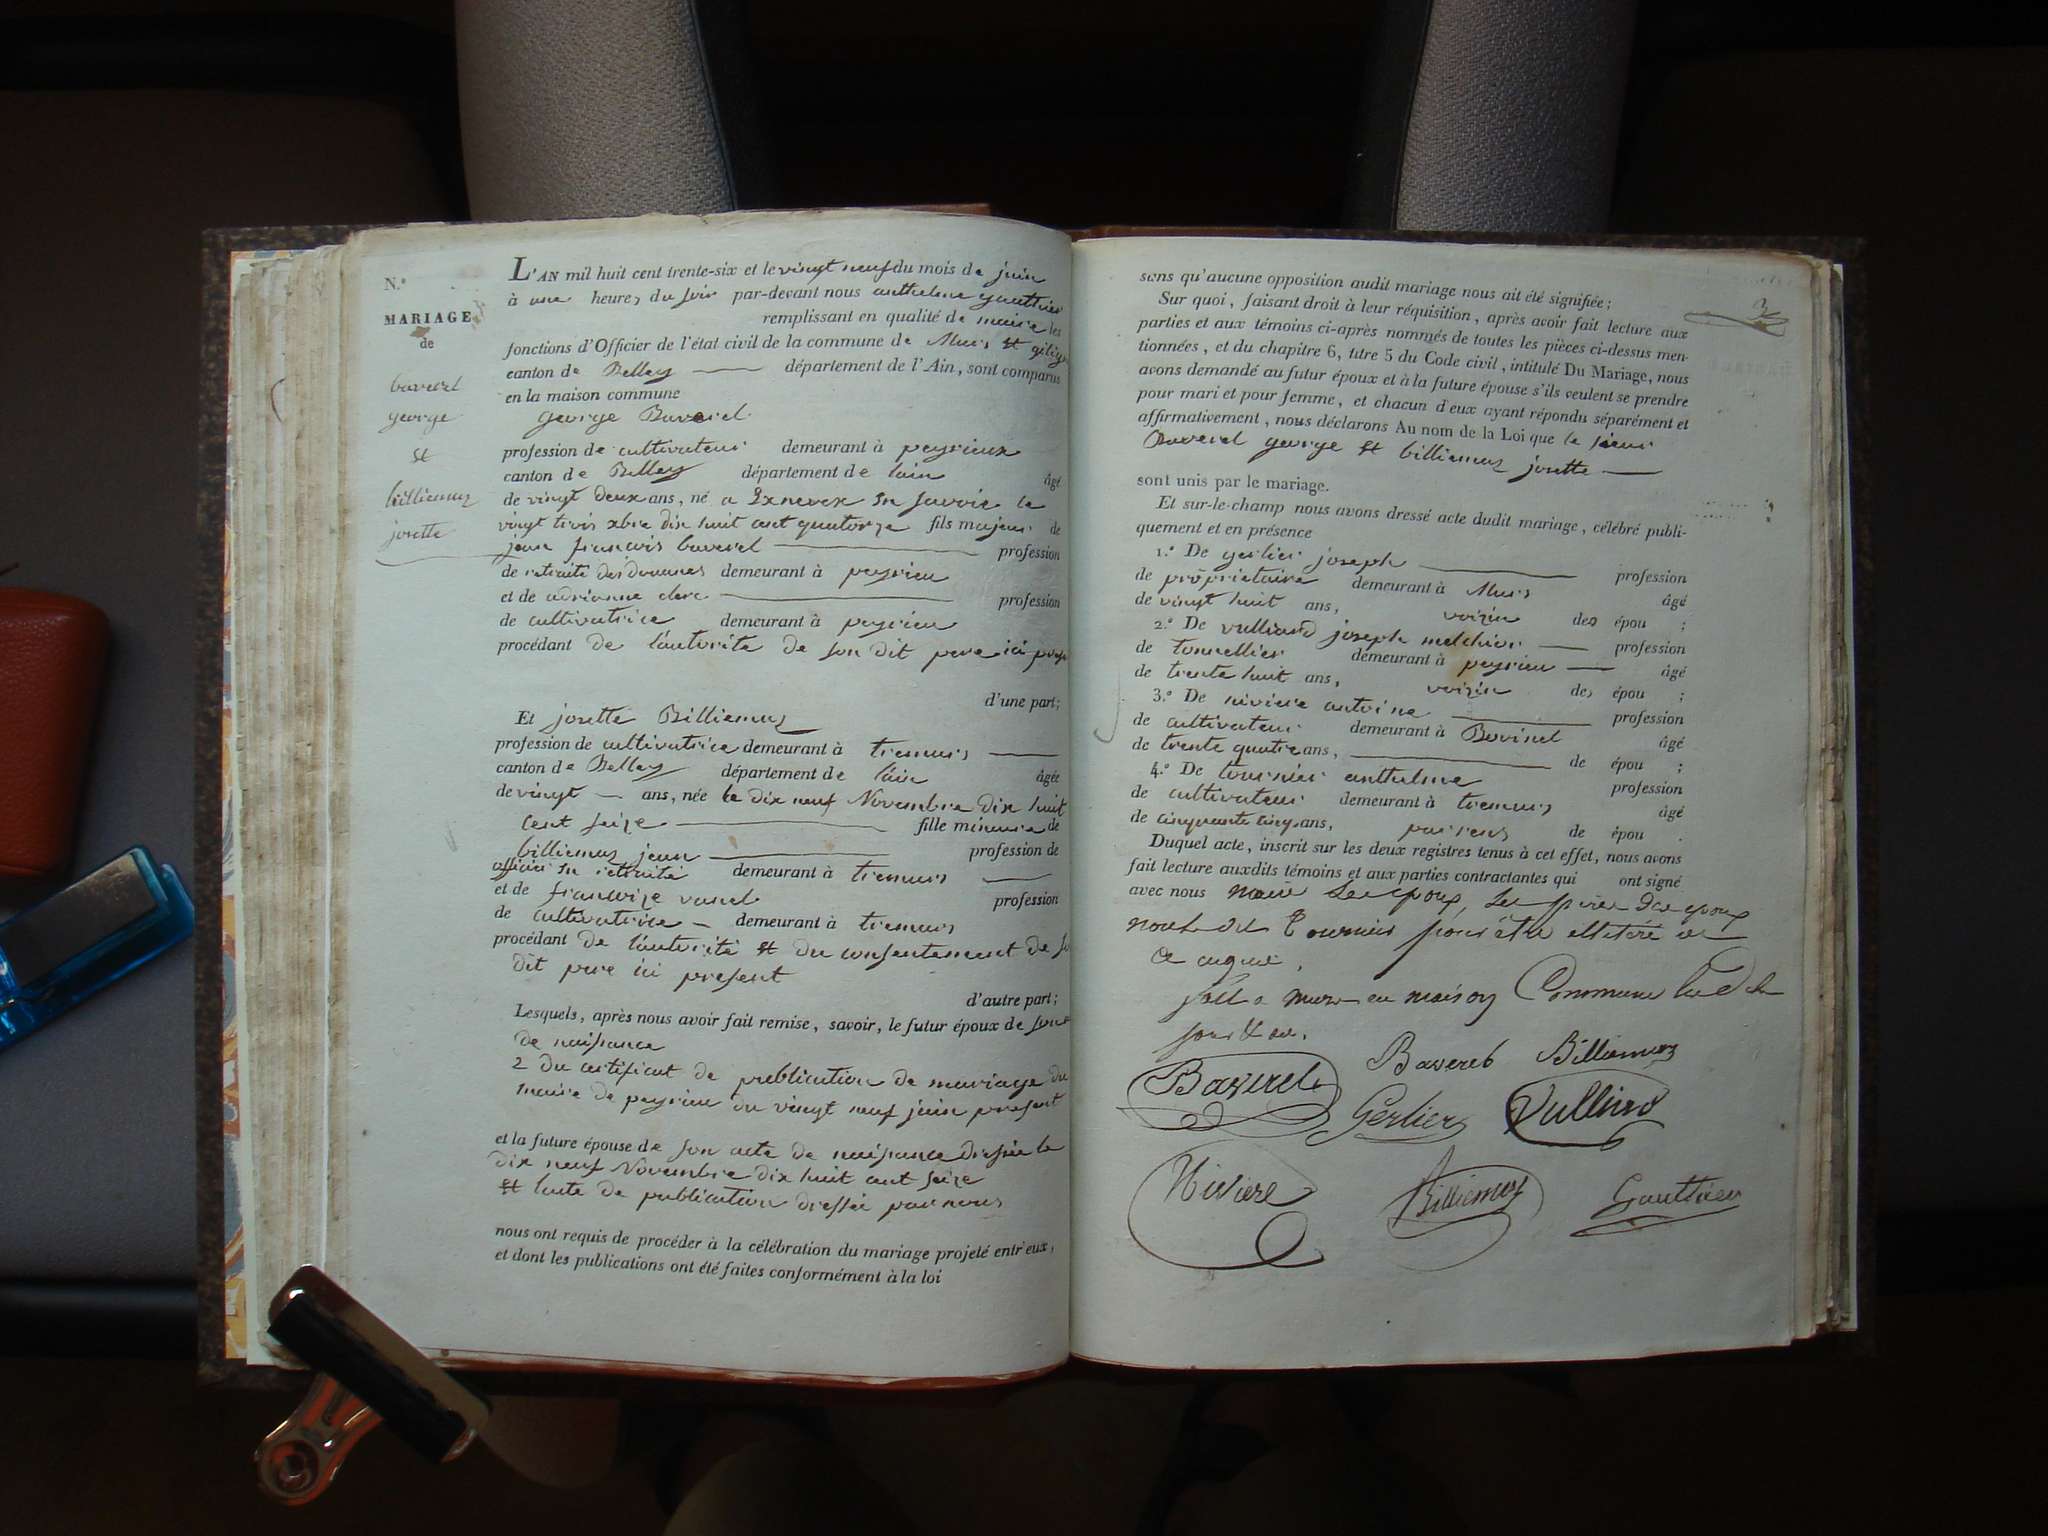 N.°
MARIAGE
de
baverel
george
et
billiemaz
josette
L'AN mil huit cent trente-six et le vingt neuf du mois de juin
à une heures du soir par-devant nous anthelme gauthier
remplissant en qualité de maire les
fonctions d'Officier de l'état civil de la commune de Murs et gélig
canton de Belley département de l'Ain, sont comparus
en la maison commune
george Baverel
profession de cultivateur demeurant à peyrieux
canton de Belley département de lain âgé
de vingt deux ans, né a en savoie le
vingt trois xbre dix huit cent quatorze fils majeur de
jean françois baverel profession
de retraité des douanes demeurant à peyrieu
et de adrianne clerc profession
de cultivatrice demeurant à peyrieu
procédant de l'autorité de son dit pere ici prese
d'une part;
Et josette Billiemaz
profession de cultivatrice demeurant à tremurs
canton de Belley département de lain âgée
de vingt ans, née le dix neuf Novembre dix huit
cent seize fille mineure de
billiemaz jean profession de
officier en retraite demeurant à tremurs
et de françoize profession
de cultivatrice demeurant à tremurs
procédant de l'autorité et du consentement de so
dit pere ici present
d'autre part;
Lesquels, après nous avoir fait remise, savoir, le futur époux de son
de naissance
2 du certificat de publication de mariage du
maire de peyrieu du vingt neuf juin present
et la future épouse de son acte de naissance dressée le
dix neuf Novembre dix huit cent seize
et lacte de publication dressée par nous
nous ont requis de procéder à la célébration du mariage projeté entr'eux,
et dont les publications ont été faites conformément à la loi
sens qu'aucune opposition audit mariage nous ait été signifiée;
Sur quoi, faisant droit à leur réquisition, après avoir fait lecture aux
parties et aux témoins ci-après nommés de toutes les pièces ci-dessus men-
tionnées, et du chapitre 6, titre 5 du Code civil, intitulé Du Mariage, nous
avons demandé au futur époux et à la future épouse s'ils veulent se prendre
pour mari et pour femme, et chacun d'eux ayant répondu séparément et
affirmativement, nous déclarons Au nom de la Loi que le sieur
Baverel george et billiemaz josette
sont unis par le mariage.
Et sur-le-champ nous avons dressé acte dudit mariage, célébré publi-
quement et en présence
1.° De gerlier joseph profession
de propriétaire demeurant à Murs âgé
de vingt huit ans, voizin des épou ;
2.° De vulliard joseph melchior profession
de tonnellier demeurant à peyrieu âgé
de trente huit ans, voizin des épou ;
3.° De riviere antoine profession
de cultivateur demeurant à âgé
de trente quatre ans, de épou ;
4.° De tournier anthelme profession
de cultivateur demeurant à tremurs âgé
de cinquante cinq ans, de épou .
Duquel acte, inscrit sur les deux registres tenus à cet effet, nous avons
fait lecture auxdits témoins et aux parties contractantes qui ont signé
avec nous maire Les epoux, Les pères des epoux
non le dit Tournier pour être illiteré de
ce enquis,
fait a murs en maison Commune les d
jour & an.
Baverel Baveret Billiemaz
Gerlier Vulliard
Riviere Billiemaz Gauthier